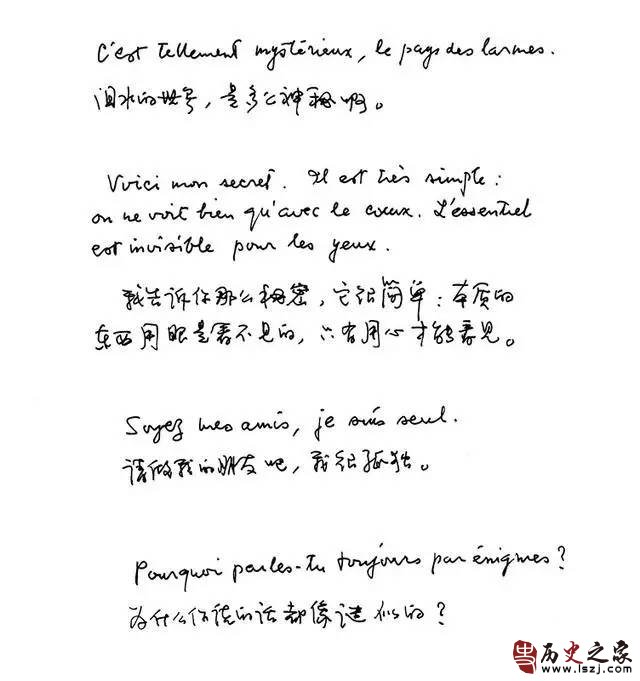 C'est tellement mystérieux, le pays des larmes.
泪水的世界，是多么神秘啊。
Voici mon secret. Il est très simple :
on ne voit bien qu'avec le cœur. L'essentiel
est invisible pour les yeux.
我告诉你那个秘密，它很简单：本质的
东西用眼是看不见的，只有用心才能看见。
Soyez mes amis, je suis seul.
请做我的朋友吧，我很孤独。
Pourquoi parles-tu toujours par énigmes ?
为什么你说的话都像谜似的？
史 历史之家
www.lszj.com